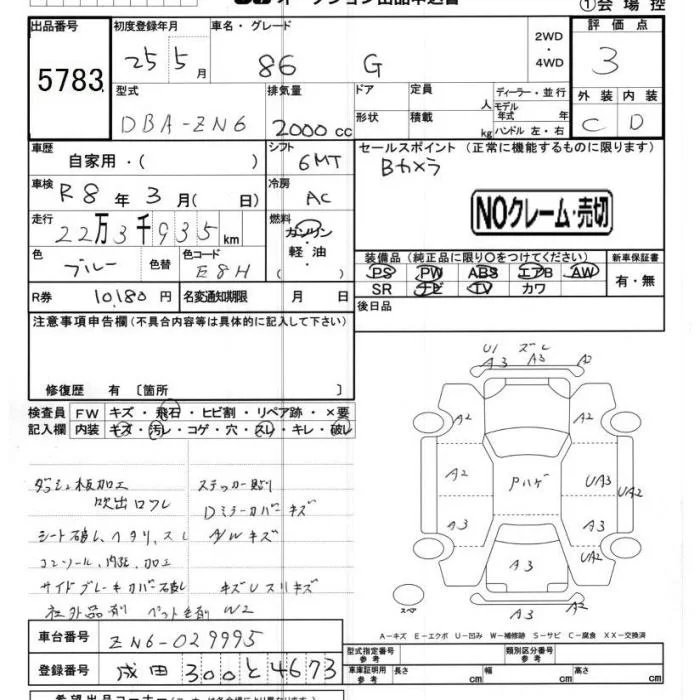 オークション出品申込書
①会場控
出品番号 初度登録年月 車名・グレード 2WD・4WD 評価点
5783 25年5月 86 G 3
型式 排気量 ドア 定員 人 ディーラー・並行 外装 内装
DBA-ZN6 2000cc 形状 積載 kg モデル年式 年 ハンドル 左・右 C D
車歴 自家用・( ) シフト 6MT セールスポイント(正常に機能するものに限ります)
Bカメラ
車検 R8年3月( 日) 冷房 AC
NOクレーム・売切
走行 22万3千935km 燃料 ガソリン 軽油 ( )
色 ブルー 色替 色コード E8H
装備品(純正品に限り〇をつけてください) 新車保証書
PS PW ABS エアB AW 有・無
SR ナビ TV カワ
R券 10,180円 名変通知期限 月 日 後日品
注意事項申告欄(不具合内容等は具体的に記入して下さい)
修復歴 有 〔箇所 〕
検査員記入欄 FW キズ・飛石・ヒビ割・リペア跡・×要
内装 キズ・汚レ・コゲ・穴・スレ・キレ・破レ
U1 ズレ
A3 A3 A2
A2 A2
A2 Pハゲ UA3 UA2
A3 A3
A3 UA2
スペア A3 A2
ダッシュ板加工 ステッカー貼り
吹出口フレ Dミラーカバーキズ
シート破レ、ヘタリ、スレ A/Wキズ
コンソール、内張、加工
サイドブレーキカバー破レ キズUスリキズ
社外品 W2
A-キズ E-エクボ U-凹み W-補修跡 S-サビ C-腐食 XX-交換済
車台番号 ZN6-029995
登録番号 成田 300 と 4673
型式指定番号 参考 類別区分番号 参考
車庫証明用 参考 長さ cm 幅 cm 高さ cm
希望出品コーナー